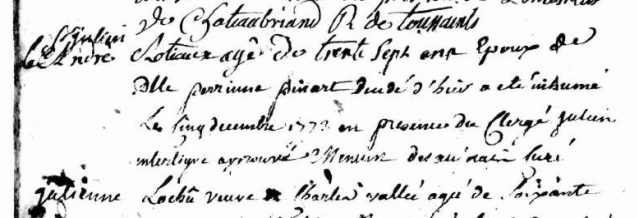 de Chateaubriand R. de toussaints
julien
andré Lotiaux agé de trente sept ans Epoux de
Dlle perrinne pinart décédé d'hier a été inhumé
Le cinq decembre 1773 en presence du Clergé julien
interligne approuvé curé
julienne Lochu veuve Charles vallée agée de Soixante